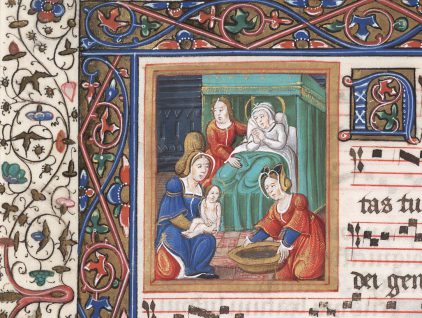 N
tas tu
dei gen